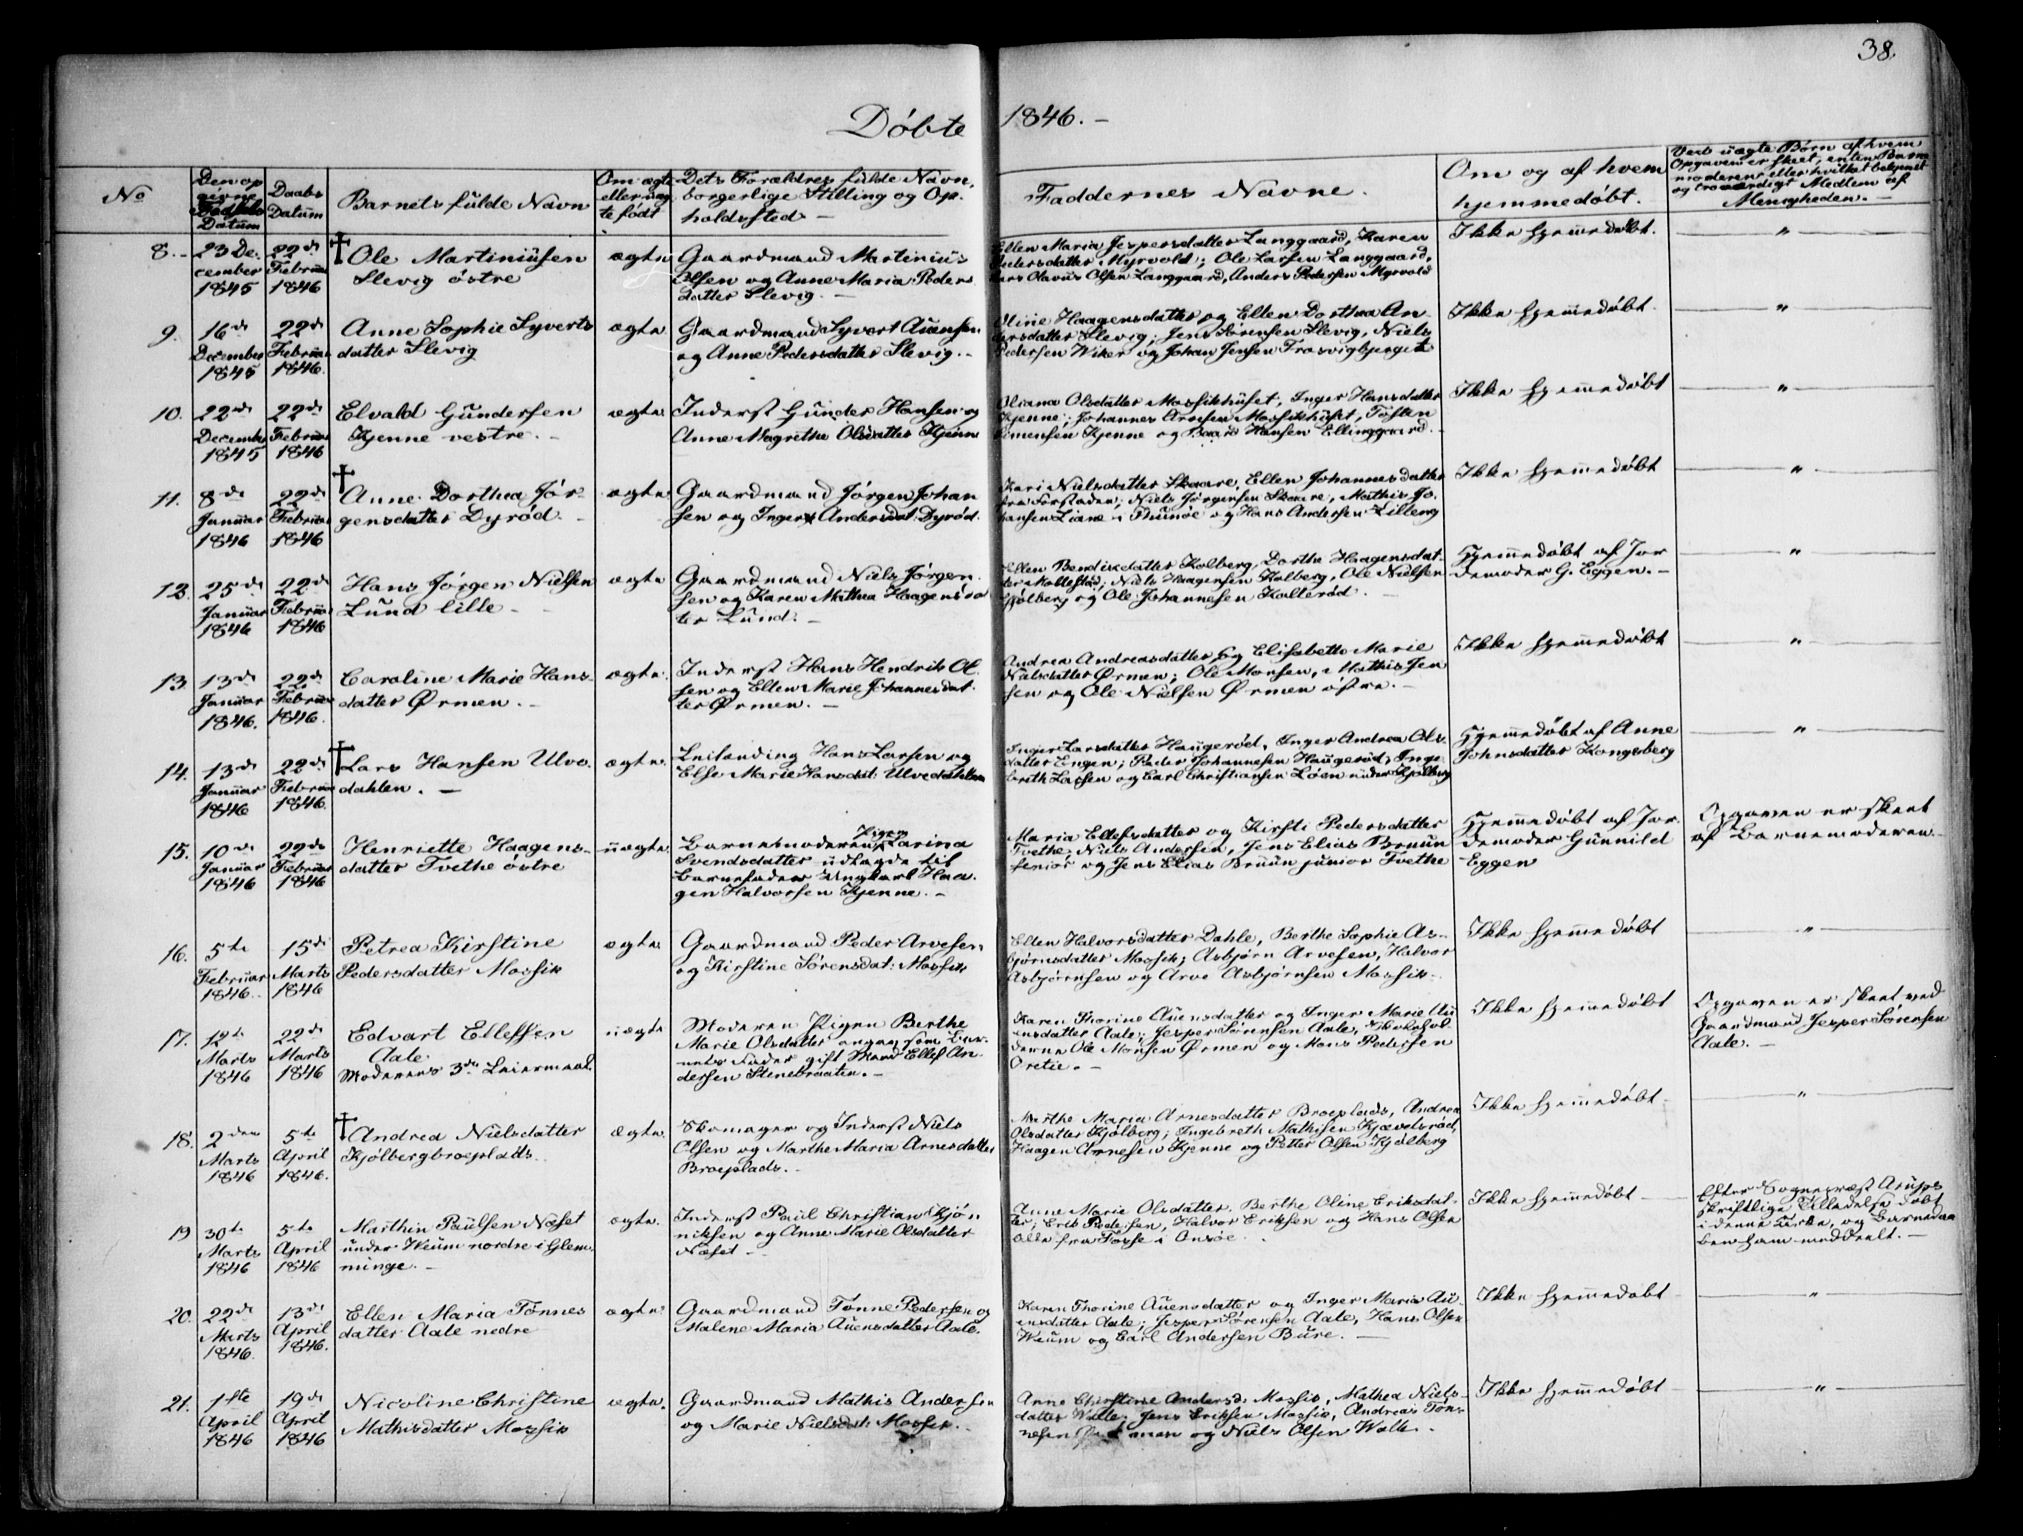 38.
Døbte 1846. –
No
Den op
givne
Fødsels
Datum
Daabs
Datum
Barnets fulde Navn
Om ægte
eller uæg
te født
Dets Forældres fulde Navn,
borgerlige Stilling og Op
holdssted –
Faddernes Navne.
Om og af hvem
hjemmedøbt.
Ved uægte Børn af hvem
Opgaven er skeet, enten Barne
moderen eller hvilket bekjendt
og troværdigt Medlem af
Menigheden. –
8. –
23 De-
cember
1845
22de
Februar
1846
† Ole Martiniusen
Slevig østre
ægte
Gaardmand Martinius
Olsen og Anne Maria Peders
datter Slevig. –
Ellen Maria Jespersdatter Langgaard, Karen
Pedersdatter Myrvold; Ole Larsen Langgaard,
Lars Olavus Olsen Langgaard, Anders Pedersen Myrvold
Ikke hjemmedøbt.
"
9.
16de
December
1845
22de
Februar
1846.
Anne Sophie Syverts
datter Slevig
ægte
Gaardmand Syvert Auensen
og Anne Pedersdatter Slevig. –
Oline Haagensdatter og Ellen Dorthea An-
dersdatter Slevig, Jens Sørensen Slevig, Niels
Pedersen Wiker og Johan Jensen Trosvigbjerget
Ikke hjemmedøbt.
"
10.
22de
December
1845
22de
Februar
1846
Elvald Gundersen
Kjenne vestre. –
ægte
Inderst Gunder Hansen og
Anne Magrethe Olsdatter Kjenne
Oliana Olsdatter Mossikhuset, Inger Hansdatter
Kjenne; Johannes Arnesen Mossikhuset, Tosten
Simensen Kjenne og Baard Hansen Ellinggaard. –
Ikke hjemmedøbt
"
11.
8de
Januar
1846
22de
Februar
1846
† Anne Dorthea Jør-
gensdatter Dyrød. –
ægte
Gaardmand Jørgen Johan
sen og Inger Andersdat. Dyrød.
Kari Nielsdatter Skaare, Ellen Johannesdatter
fra Forstaden; Niels Jørgensen Skaare, Mathis Jo.
hansen Liane i Thunøe og Hans Andersen Lilleng
Ikke hjemmedøbt
"
12.
25de
Januar
1846
22de
Februar
1846
Hans Jørgen Nielsen
Lund lille –
ægte
Gaardmand Niels Jørgen
sen og Karen Mathea Haagensdat
ter Lund. –
Ellen Bendixdatter Kolberg, Dorthe Haagensdat-
ter Moltestad; Niels Haagensen Kolberg, Ole Nielsen
Kjølberg og Ole Johannesen Kolterød.
Hjemmedøbt af Jor
demoder G. Eggen. –
"
13
13de
Januar
1846.
22de
Februar
1846.
Caroline Marie Hans-
datter Ørmen. –
ægte.
Inderst Hans Hendrik Ol
sen og Ellen Marie Johannesdat.
ter Ørmen. –
Andrea Andreasdatter og Elisabeth Marie
Nielsdatter Ørmen; Ole Monsen, Mathis Jen
sen og Ole Nielsen Ørmen østre. –
Ikke hjemmedøbt
"
14.
13de
Januar
1846
22de
Februar
1846.
† Lars Hansen Ulve.
dahlen. –
ægte.
Leilending Hans Larsen og
Else Marie Hansdat. Ulvedahlen
Inger Larsdatter Haugerød, Inger Andrea Ols.
datter Engen; Peder Johannesen Haugerød, Inge-
breth Larsen og Carl Christiansen Løen under Kjølberg
Hjemmedøbt af Anne
Johnsdatter Kongsberg
"
15.
10de
Januar
1846
22de
Februar
1846
Henriette Haagens-
datter Tvethe østre
uægte
Barnemoderen Pigen Karina
Svendsdatter udlagde til
Barnefader Ungkarl Haa-
gen Halvorsen Kjenne. –
Maria Ellefsdatter og Kirsti Pedersdatter
Tvethe, Niels Andersen, Jens Elias Bruun
senior og Jens Elias Bruun junior Tvethe
Hjemmedøbt af Jor
demoder Gunnild
Eggen
Opgaven er skeet
af Barnemoderen. –
16.
5te
Februar
1846.
15de
Marts
1846
Petrea Kirstine
Pedersdatter Mossik
ægte
Gaardmand Peder Arvesen
og Kirstine Sørensdat: Mossik
Ellen Halvorsdatter Dahle, Berthe Sophie As-
bjørnsdatter Mossik; Asbjørn Arvesen, Halvor
Asbjørnsen og Arve Asbjørnsen Mossik.
Ikke hjemmedøbt
"
17.
12te
Marts
1846
22de
Marts
1846
Edvart Ellefsen
Aale.
Moderens 3die Leiermaal.
uægte
Moderen Pigen Berthe
Marie Olsdatter angav som Bar-
nets Fader gift Mand Ellef An-
dersen Stenebraaten. –
Karen Thorine Auensdatter og Inger Marie Au
ensdatter Aale; Jesper Sørensen Aale,
derne Ole Monsen Ørmen og Mons Pedersen
Oretie. –
Ikke hjemmedøbt
Opgaven er skeet ved
Gaardmand Jesper Sørensen
Aale. –
18.
2den
Marts
1846
5te
April
1846.
† Andrea Nielsdatter
Kjølbergbroeplads.
ægte
Skomager og Inderst Niels
Olsen og Marthe Maria Arnesdatter
Broeplads. –
Marthe Maria Arnesdatter Broeplads, Andrea
Olsdatter Kjølberg; Ingebreth Mathisen Kjævelsrød,
Haagen Arnesen Kjenne og Petter Olsen Kjølberg
Ikke hjemmedøbt
"
19
30te
Marts
1846
5te
April
1846
Marthin Paulsen Næset
under Weum nordre i Glem-
minge. –
ægte.
Inderst Paul Christian Kjøn
niksen og Anne Marie Olsdatter
Næset –
Anne Marie Olsdatter, Berthe Oline Eriksdat-
ter; Erik Pedersen, Halvor Eriksen og Hans Olsen
alle fra Fosse i Onsøe.
Ikke hjemmedøbt –
Efter Sognepræst Arups
skriftlige Tilladelse døbt
i denne Kirke, og Barnedaa
ben ham meddeelt. –
20.
22de
Marts
1846.
13de
April
1846.
Ellen Maria Tønnes
datter Aale nedre
ægte.
Gaardmand Tønne Pedersen og
Malene Maria Auensdatter Aale.
Karen Thorine Auensdatter og Inger Maria Au-
ensdatter Aale; Jesper Sørensen Aale, Hans Olsen
Weum og Carl Andersen Bure. –
Ikke hjemmedøbt
"
21.
1ste
April
1846
19de
April
1846
Nicoline Christine
Mathisdatter Mossik
ægte.
Gaardmand Mathis Andersen
og Marie Nielsdat: Mossik.
Anne Christine Andersd. Mossik, Mathea Niels-
datter Walle, Jens Eriksen Mossik, Andreas Tøn-
nesen og Niels Olsen Walle.
Ikke hjemmedøbt
"